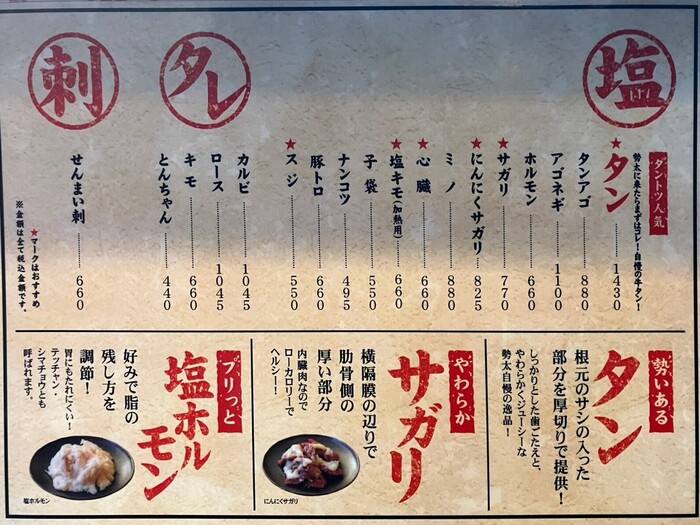 塩
ダントツ人気
勢太に来たらまずはコレ!自慢の牛タン!
★タン 1430
タンアゴ 880
アゴネギ 1100
ホルモン 660
★サガリ 770
★にんにくサガリ 825
ミノ 880
★心臓 660
★塩キモ(加熱用) 660
子袋 550
ナンコツ 495
豚トロ 660
★スジ 550
タレ
カルビ 1045
ロース 1045
キモ 660
とんちゃん 440
刺
せんまい刺 660
★マークはおすすめ
※金額は全て税込金額です。
勢いある
タン
根元のサシの入った
部分を厚切りで提供!
しっかりとした歯ごたえと、
やわらかくジューシーな
勢太自慢の逸品!
やわらか
サガリ
横隔膜の辺りで
肋骨側の
厚い部分
内臓肉なので
ローカロリーで
ヘルシー!
にんにくサガリ
プリっと
塩ホルモン
好みで脂の
残し方を
調節!
胃にもたれにくい!
テッチャン、
シマチョウとも
呼ばれます。
塩ホルモン